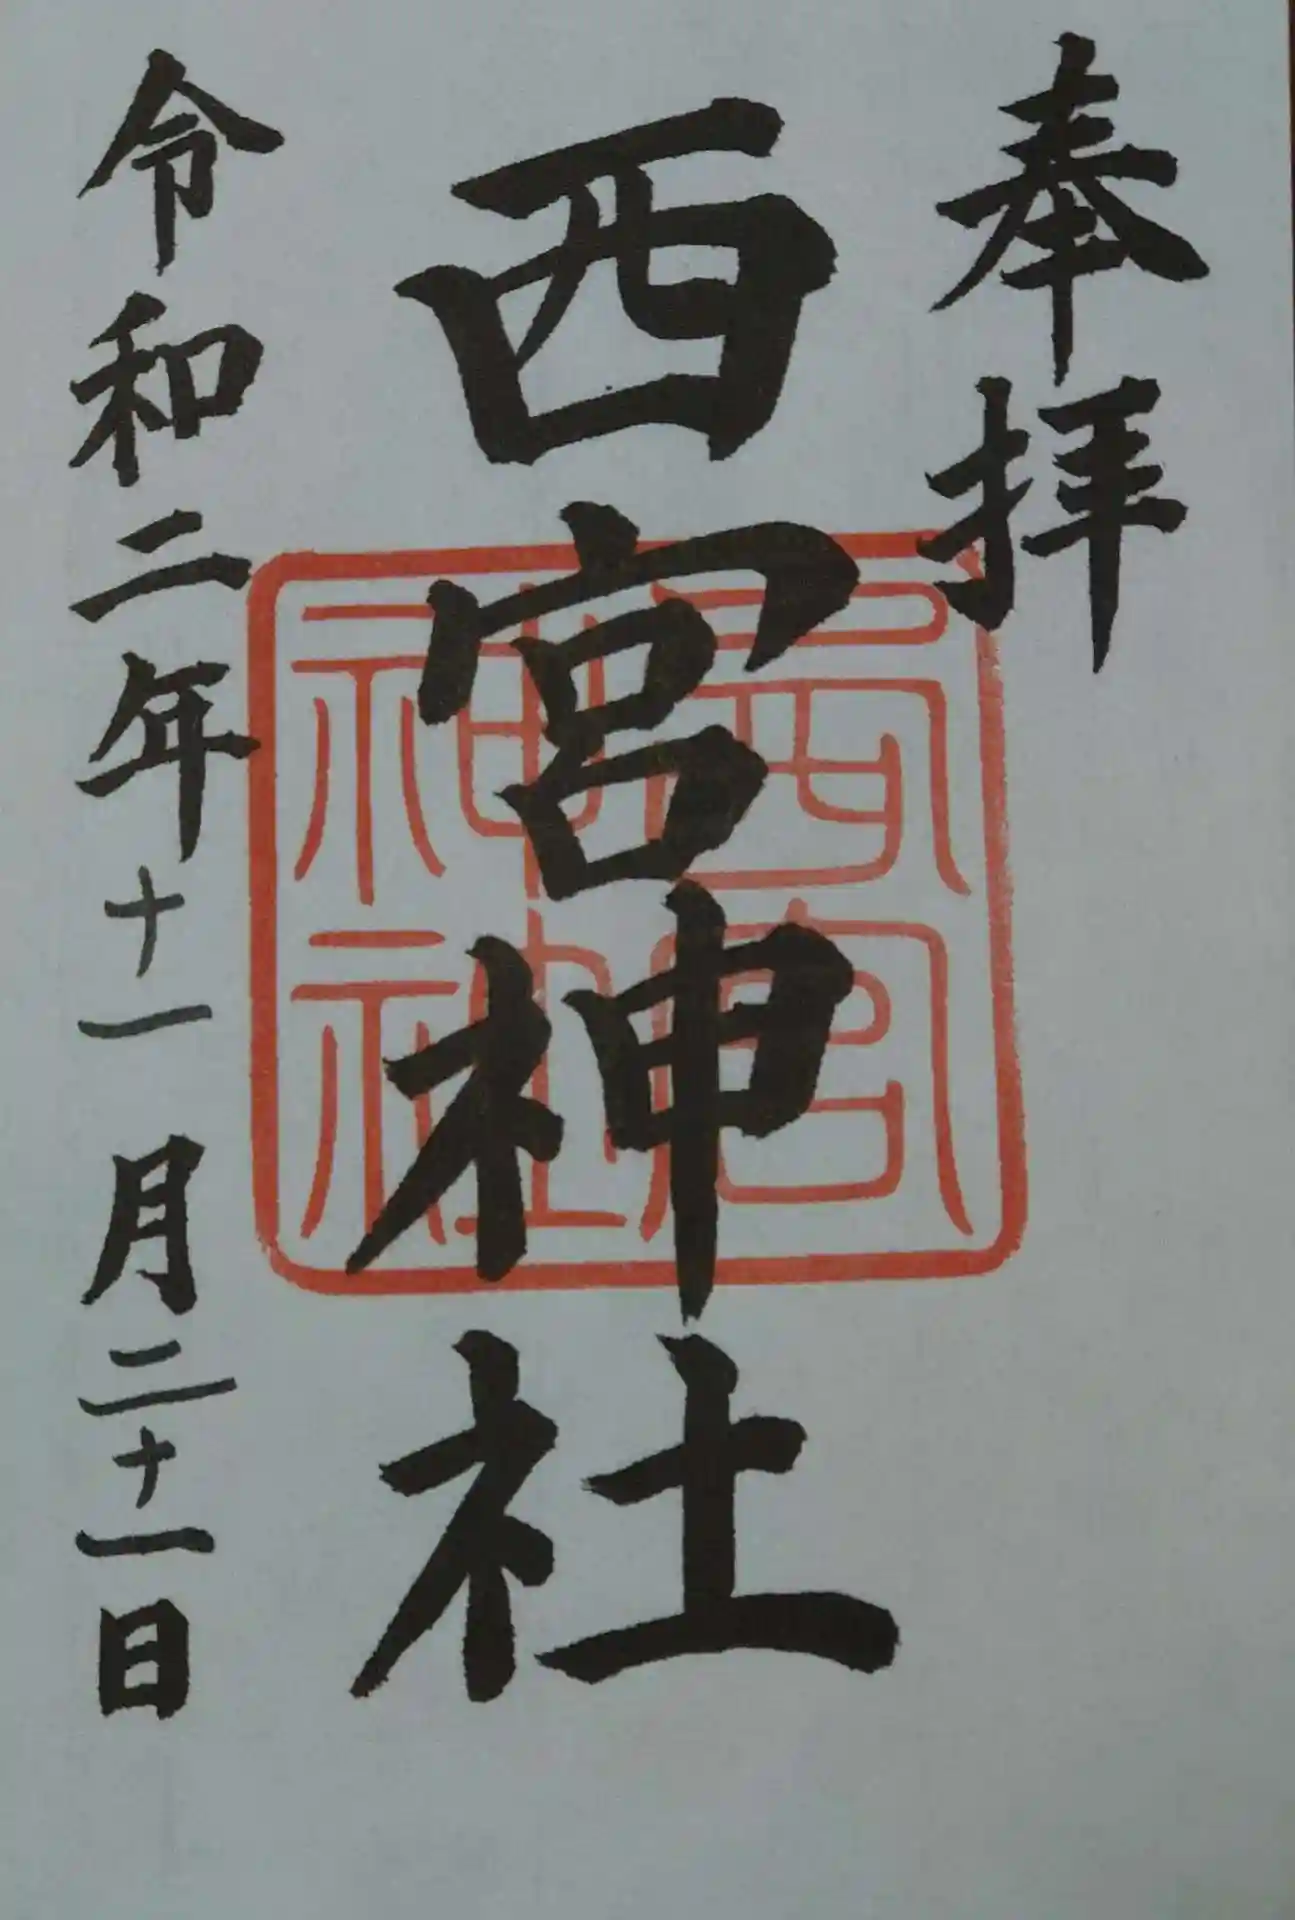 奉拝
西宮神社
西宮神社
令和二年十一月二十一日